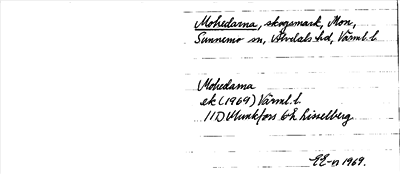 Mohedarna, skogsmark, Mon,
Sunnemo sn, Älvdals hd, Värml. l.
Mohedarna
ek (1969) Värml. l.
11D Munkfors 6h Lisselberg
EE-n 1969.